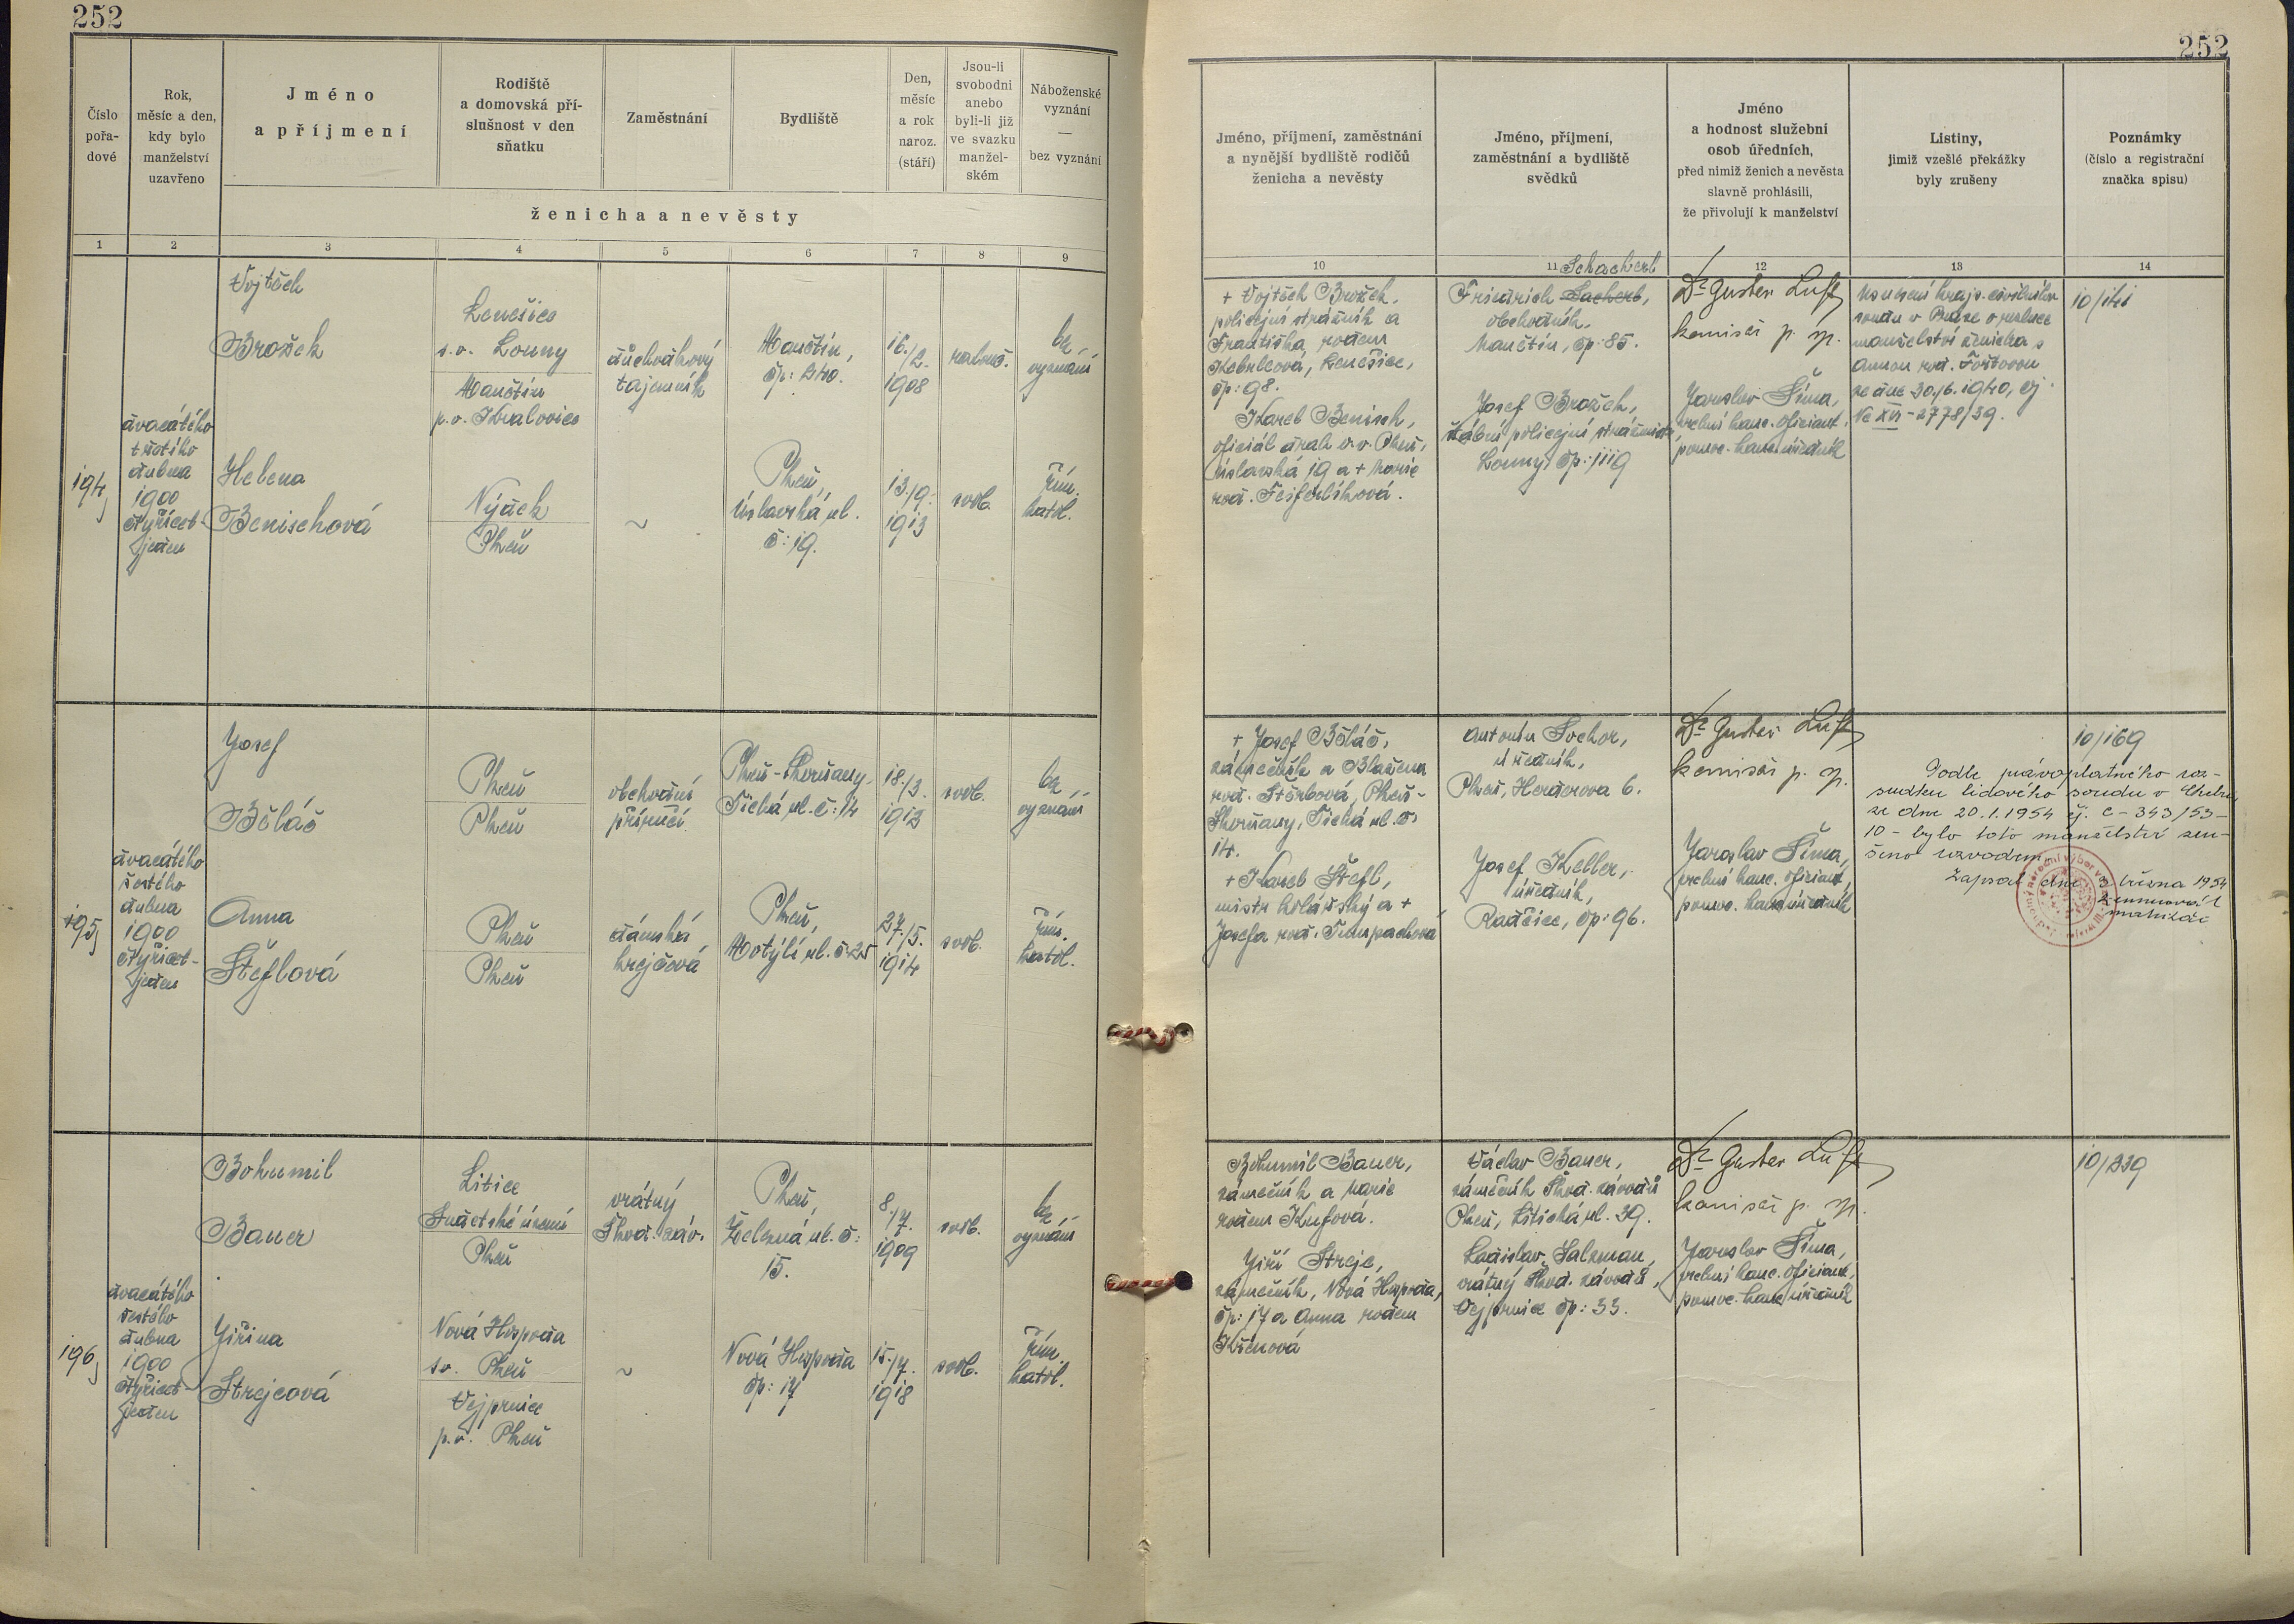 252
252
Číslo
pořa-
dové
Rok,
měsíc a den,
kdy bylo
manželství
uzavřeno
Jméno
a příjmení
Rodiště
a domovská pří-
slušnost v den
sňatku
Zaměstnání
Bydliště
Den,
měsíc
a rok
naroz.
(stáří)
Jsou-li
svobodni
anebo
byli-li již
ve svazku
manžel-
ském
Náboženské
vyznání
—
bez vyznání
ženicha a nevěsty
1 2 3 4 5 6 7 8 9
Jméno, příjmení, zaměstnání
a nynější bydliště rodičů
ženicha a nevěsty
Jméno, příjmení,
zaměstnání a bydliště
svědků
Jméno
a hodnost služební
osob úředních,
před nimiž ženich a nevěsta
slavně prohlásili,
že přivolují k manželství
Listiny,
jimiž vzešlé překážky
byly zrušeny
Poznámky
(číslo a registrační
značka spisu)
10 11 12 13 14
194
dvacátého
třetího
dubna
1900
čtyřicet-
jeden
Vojtěch
Brožek
Lenešice
s.o. Louny
Manětín
p.o. Kralovice
důchodkový
tajemník
Manětín,
čp: 240.
16./2.
1908
bez
vyznání
Helena
Benischová
Nýdek
Plzeň
~
Plzeň,
Úslavská ul.
č: 19.
13./9.
1913
svob.
řím.
katol.
+ Vojtěch Brožek,
policejní strážník a
Františka rodem
Lenešice,
čp: 98.
Karel Benisch,
oficiál drah v.v. Plzeň,
Úslavská 19 a + Marie
roz.
Schacherl
Friedrich Sacherl,
obchodník,
Manětín, čp: 85.
Josef Brožek,
štábní policejní strážmistr,
Louny, čp: 1119
Dr Gustav Luft
komisař p. sp.
Jaroslav Šíma,
kanc. oficiant,
pomoc. kanc. úředník
Usnesení kraj. civilního
soudu v Praze o rozluce
manželství ženicha s
Annou roz.
ze dne 30./6. 1940, čj.
Nc XVI-2778/39.
10/141
195
dvacátého
šestého
dubna
1900
čtyřicet-
jeden
Josef
Běláč
Plzeň
Plzeň
obchodní
příručí
Plzeň-Skvrňany,
Tichá ul. č: 14
18./3.
1913
svob.
bez
vyznání
Anna
Šteflová
Plzeň
Plzeň
dámská
krejčová
Plzeň,
Motýlí ul. č. 25
27./5.
1914
svob.
řím.
katol.
+ Josef Běláč,
zámečník a Blažena
roz. Plzeň-
Skvrňany, Tichá ul. č.
14.
+ Karel Štefl,
mistr kolářský a +
Josefa roz.
Antonín Svehor,
úředník,
Plzeň, Herderova 6.
Josef Keller,
úředník,
Radčice, čp: 96.
Dr Gustav Luft
komisař p. sp.
Jaroslav Šíma,
kanc. oficiant,
pomoc. kanc. úředník
10/169
Podle právoplatného roz-
sudku lidového soudu v Chebu
ze dne 20.1.1954 čj. C-343/53-
10- bylo toto manželství zru-
šeno rozvodem.
Zapsal dne března 1954
matrikář
196
dvacátého
šestého
dubna
1900
čtyřicet-
jeden
Bohumil
Bauer
Litice
Sudetské území
Plzeň
vrátný
Škod. záv.
Plzeň,
Železná ul. č:
15.
8./7.
1909
svob.
bez
vyznání
Jiřina
Strejcová
Nová Hospoda
s.o. Plzeň
Vejprnice
p.o. Plzeň
~
Nová Hospoda
čp: 17
15./7.
1918
svob.
řím.
katol.
Bohumil Bauer,
zámečník a Marie
rodem
Jiří Strejc,
zámečník, Nová Hospoda,
čp: 17 a Anna rodem
Václav Bauer,
zámečník Škod. závodů
Plzeň, Litická ul. 39.
Ladislav Salzman,
vrátný Škod. závodů,
Vejprnice čp: 33.
Dr Gustav Luft
komisař p. sp.
Jaroslav Šíma,
kanc. oficiant,
pomoc. kanc. úředník
10/239